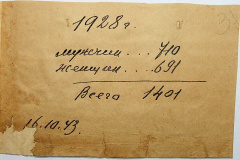 1928 г.
мужчин . . . 710
женщин . . . 691
Всего 1401
16.10.43.